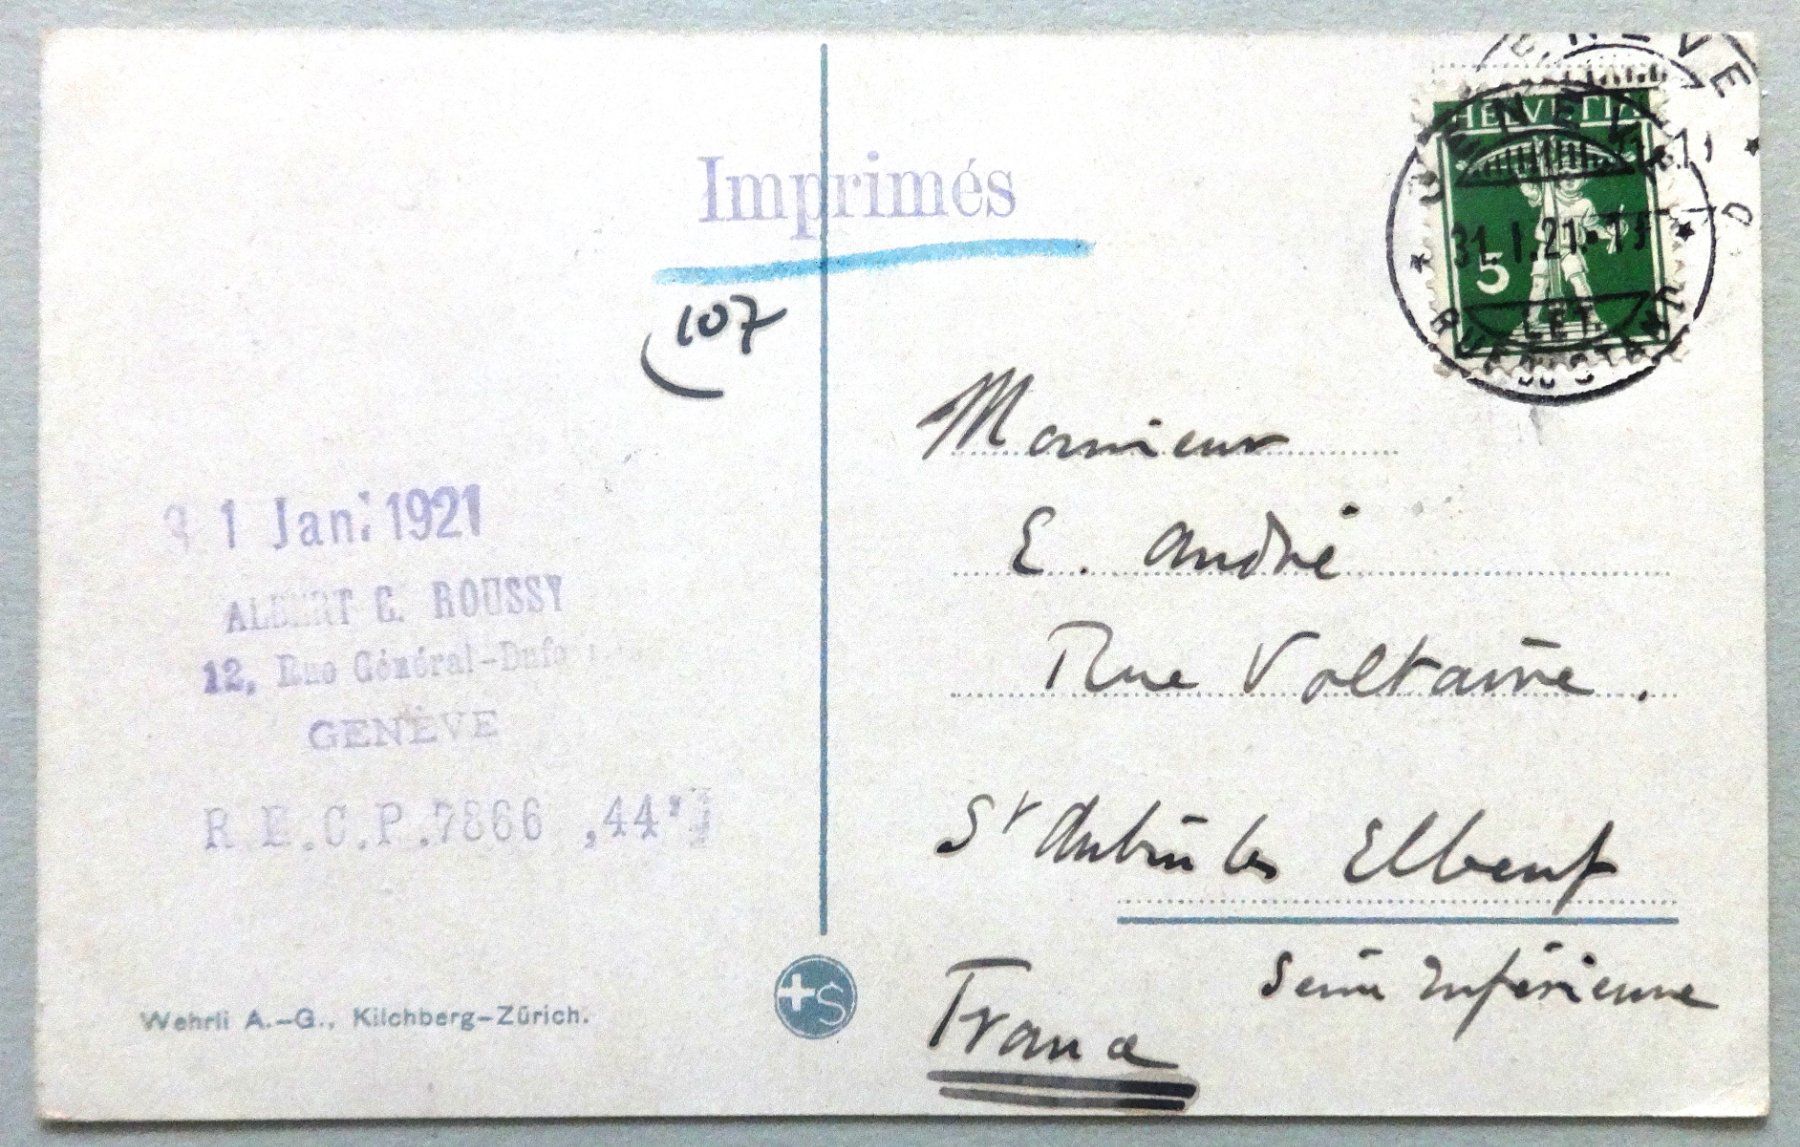 Imprimés
(107
31 Jan. 1921
ALBERT C. ROUSSY
12, Rue Général-Dufo
GENÈVE
R.E.C.P. 7866
Wehrli A.-G., Kilchberg-Zürich.
+S
HELVETIA
5
GENÈVE
31.I.21
LET.
Monsieur
E. André
Rue Voltaire.
St Aubin les Elbeuf
Seine Inférieure
France